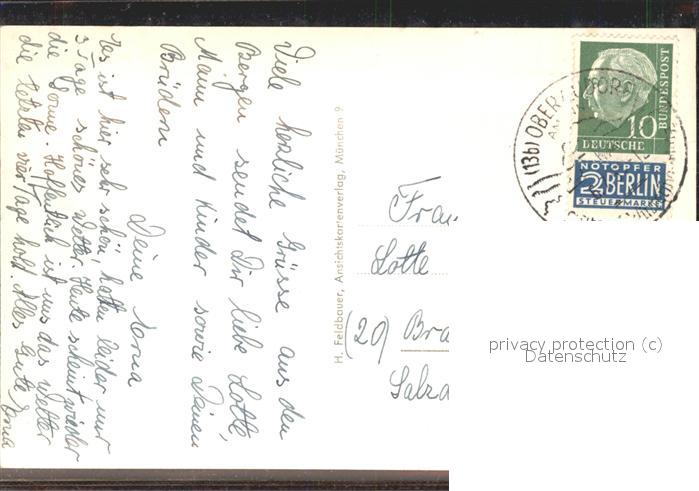 Viele herzliche Grüsse aus den
Bergen sendet Dir liebe Lotte,
Mann und Kinder sowie Deinen
Brüdern
Deine Erna
Es ist hier sehr schön, hatten leider nur
3 Tage schönes Wetter. Heute scheint wieder
die Sonne. Hoffentlich ist uns das Wetter
die letzten vier Tage hold. Alles Gute Erna
H. Feldbauer, Ansichtskartenverlag, München 9
(13b) OBERAUDORF
10
DEUTSCHE
BUNDESPOST
NOTOPFER
2 BERLIN
STEUERMARKE
Frau
Lotte
(20) Bra
Salza
privacy protection (c)
Datenschutz